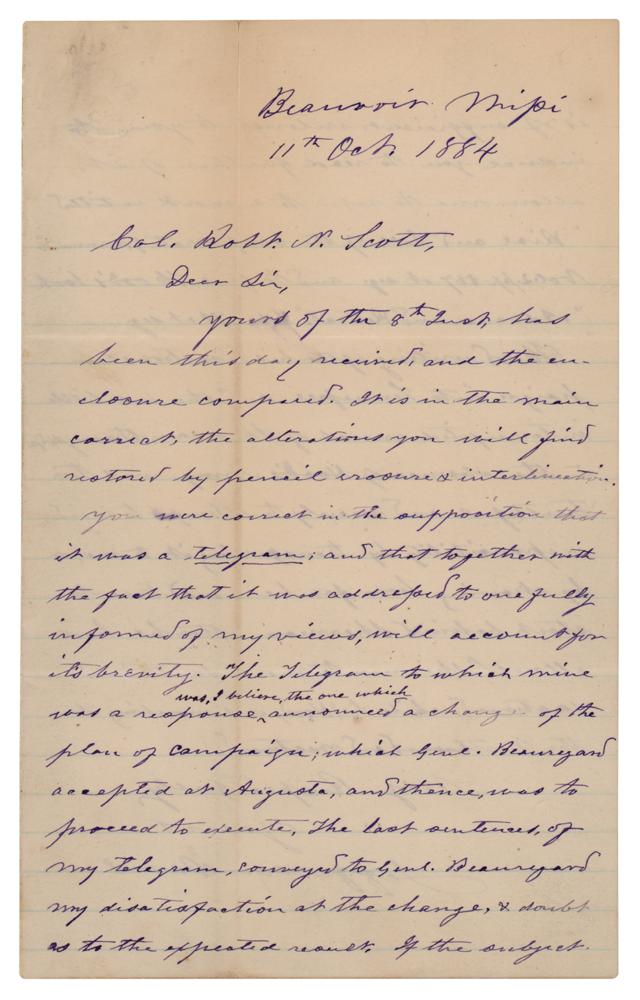 Beauvoir Mipi
11th Oct. 1884
Col. Robt. N. Scott,
Dear Sir,
yours of the 8th Inst, has
been this day received, and the en-
closure compared. It is in the main
correct, the alterations you will find
restored by pencil erasure & interlineation.
You were correct in the supposition that
it was a telegram; and that together with
the fact that it was addressed to one fully
informed of my views, will account for
its brevity. The Telegram to which mine
was, I believe, the one which
was a response, announced a change of the
plan of campaign; which Genl. Beauregard
accepted at Augusta, and thence, was to
proceed to execute. The last sentences, of
my telegram, conveyed to Genl. Beauregard
my disatisfaction at the change, & doubt
as to the expected result. If the subject